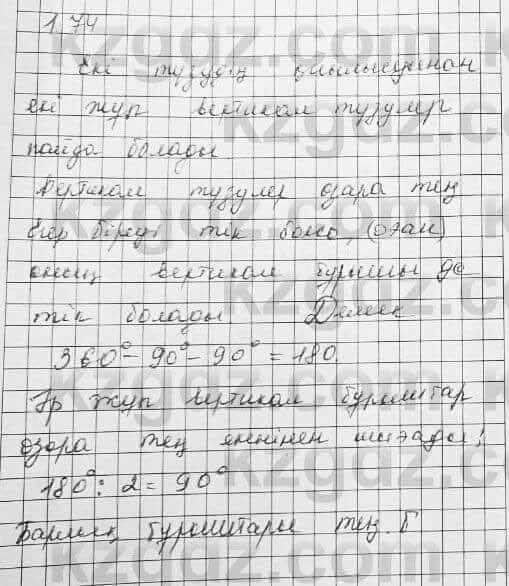 1.74
Екі түзудің қиылысуынан
екі жұп вертикал түзулер
пайда болады
Вертикал түзулер өзара тең
Егер біреуі тік болса, (онан)
оның вертикал бұрышы 90
тік болады Демек
360° - 90° - 90° = 180.
Әр жұп вертикал бұрыштар
өзара тең екенінен шығады;
180° : 2 = 90°
Барлық бұрыштары тең.